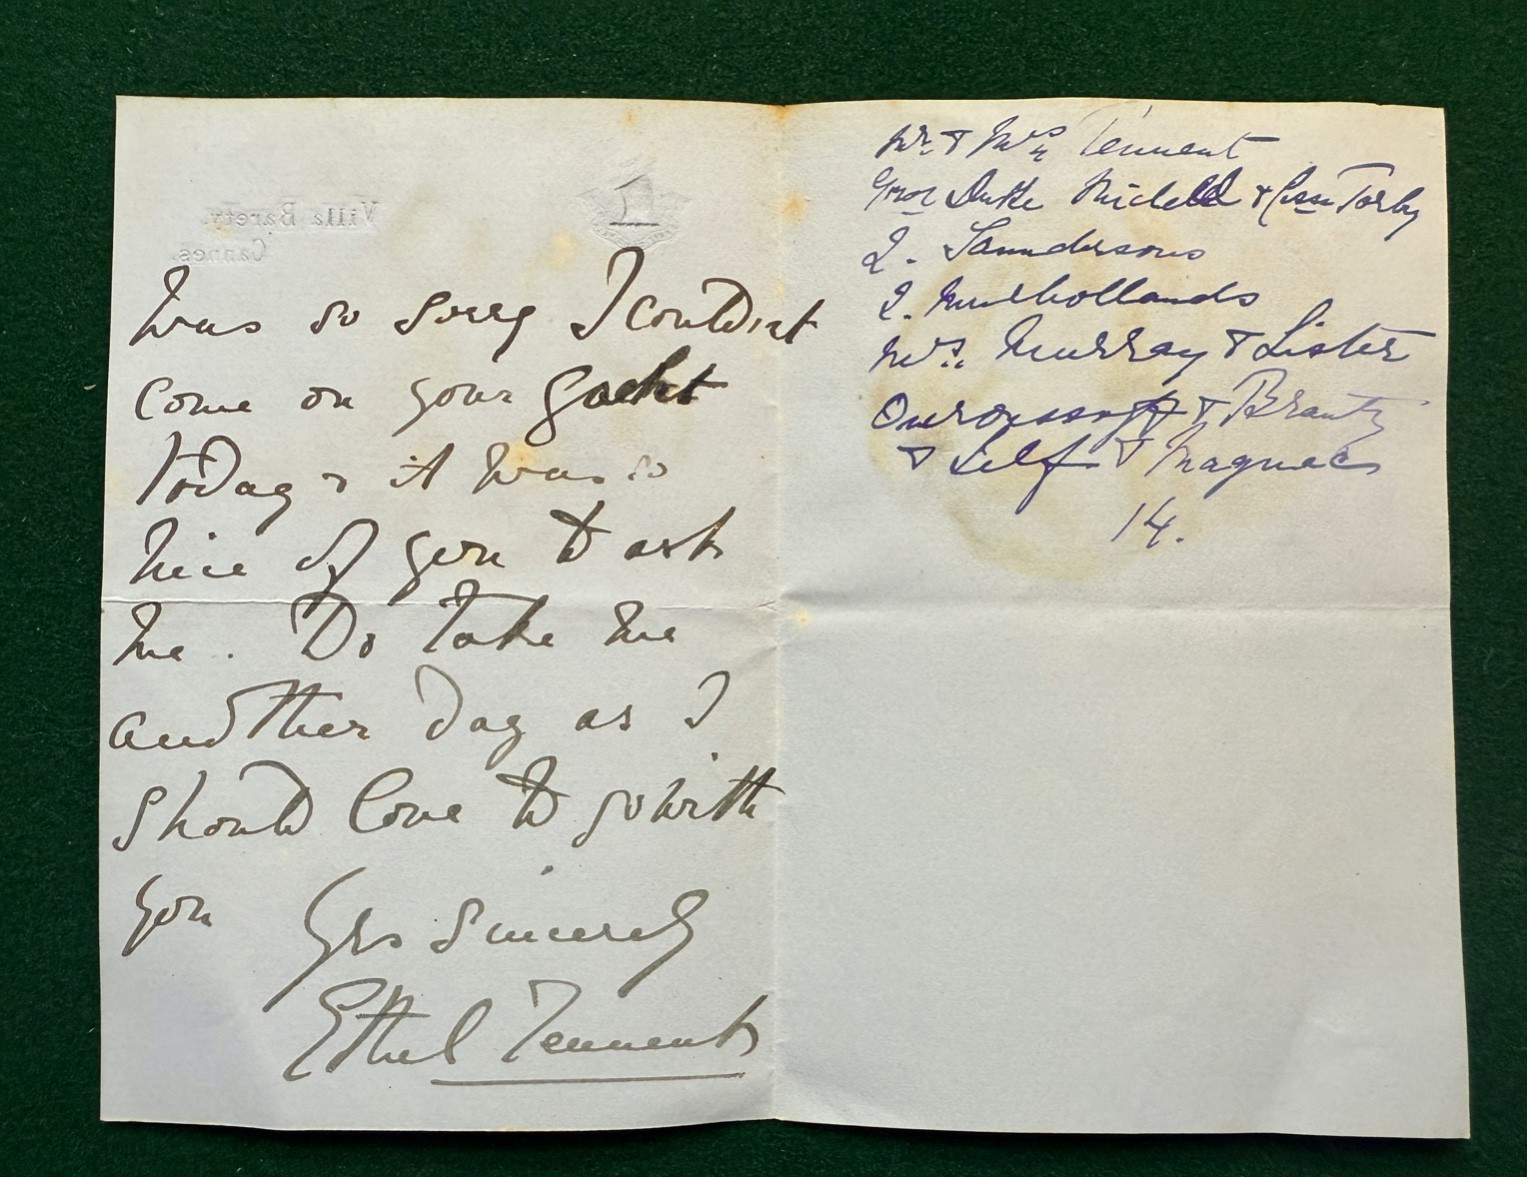 Villa Barety.
Cannes.
was so sorry I couldnt
come on your yacht
today & it was so
nice of you to ask
me. Do take me
another day as I
should love to go with
you Yrs Sincerely
Ethel Tennent
Mr. & Mrs. Tennent
Duke & Css Torby
2. Saundersons
2. Mulhollands
Mrs. Murray & Lister
Ouroussoff & Brantz
& Self & Magniac
14.